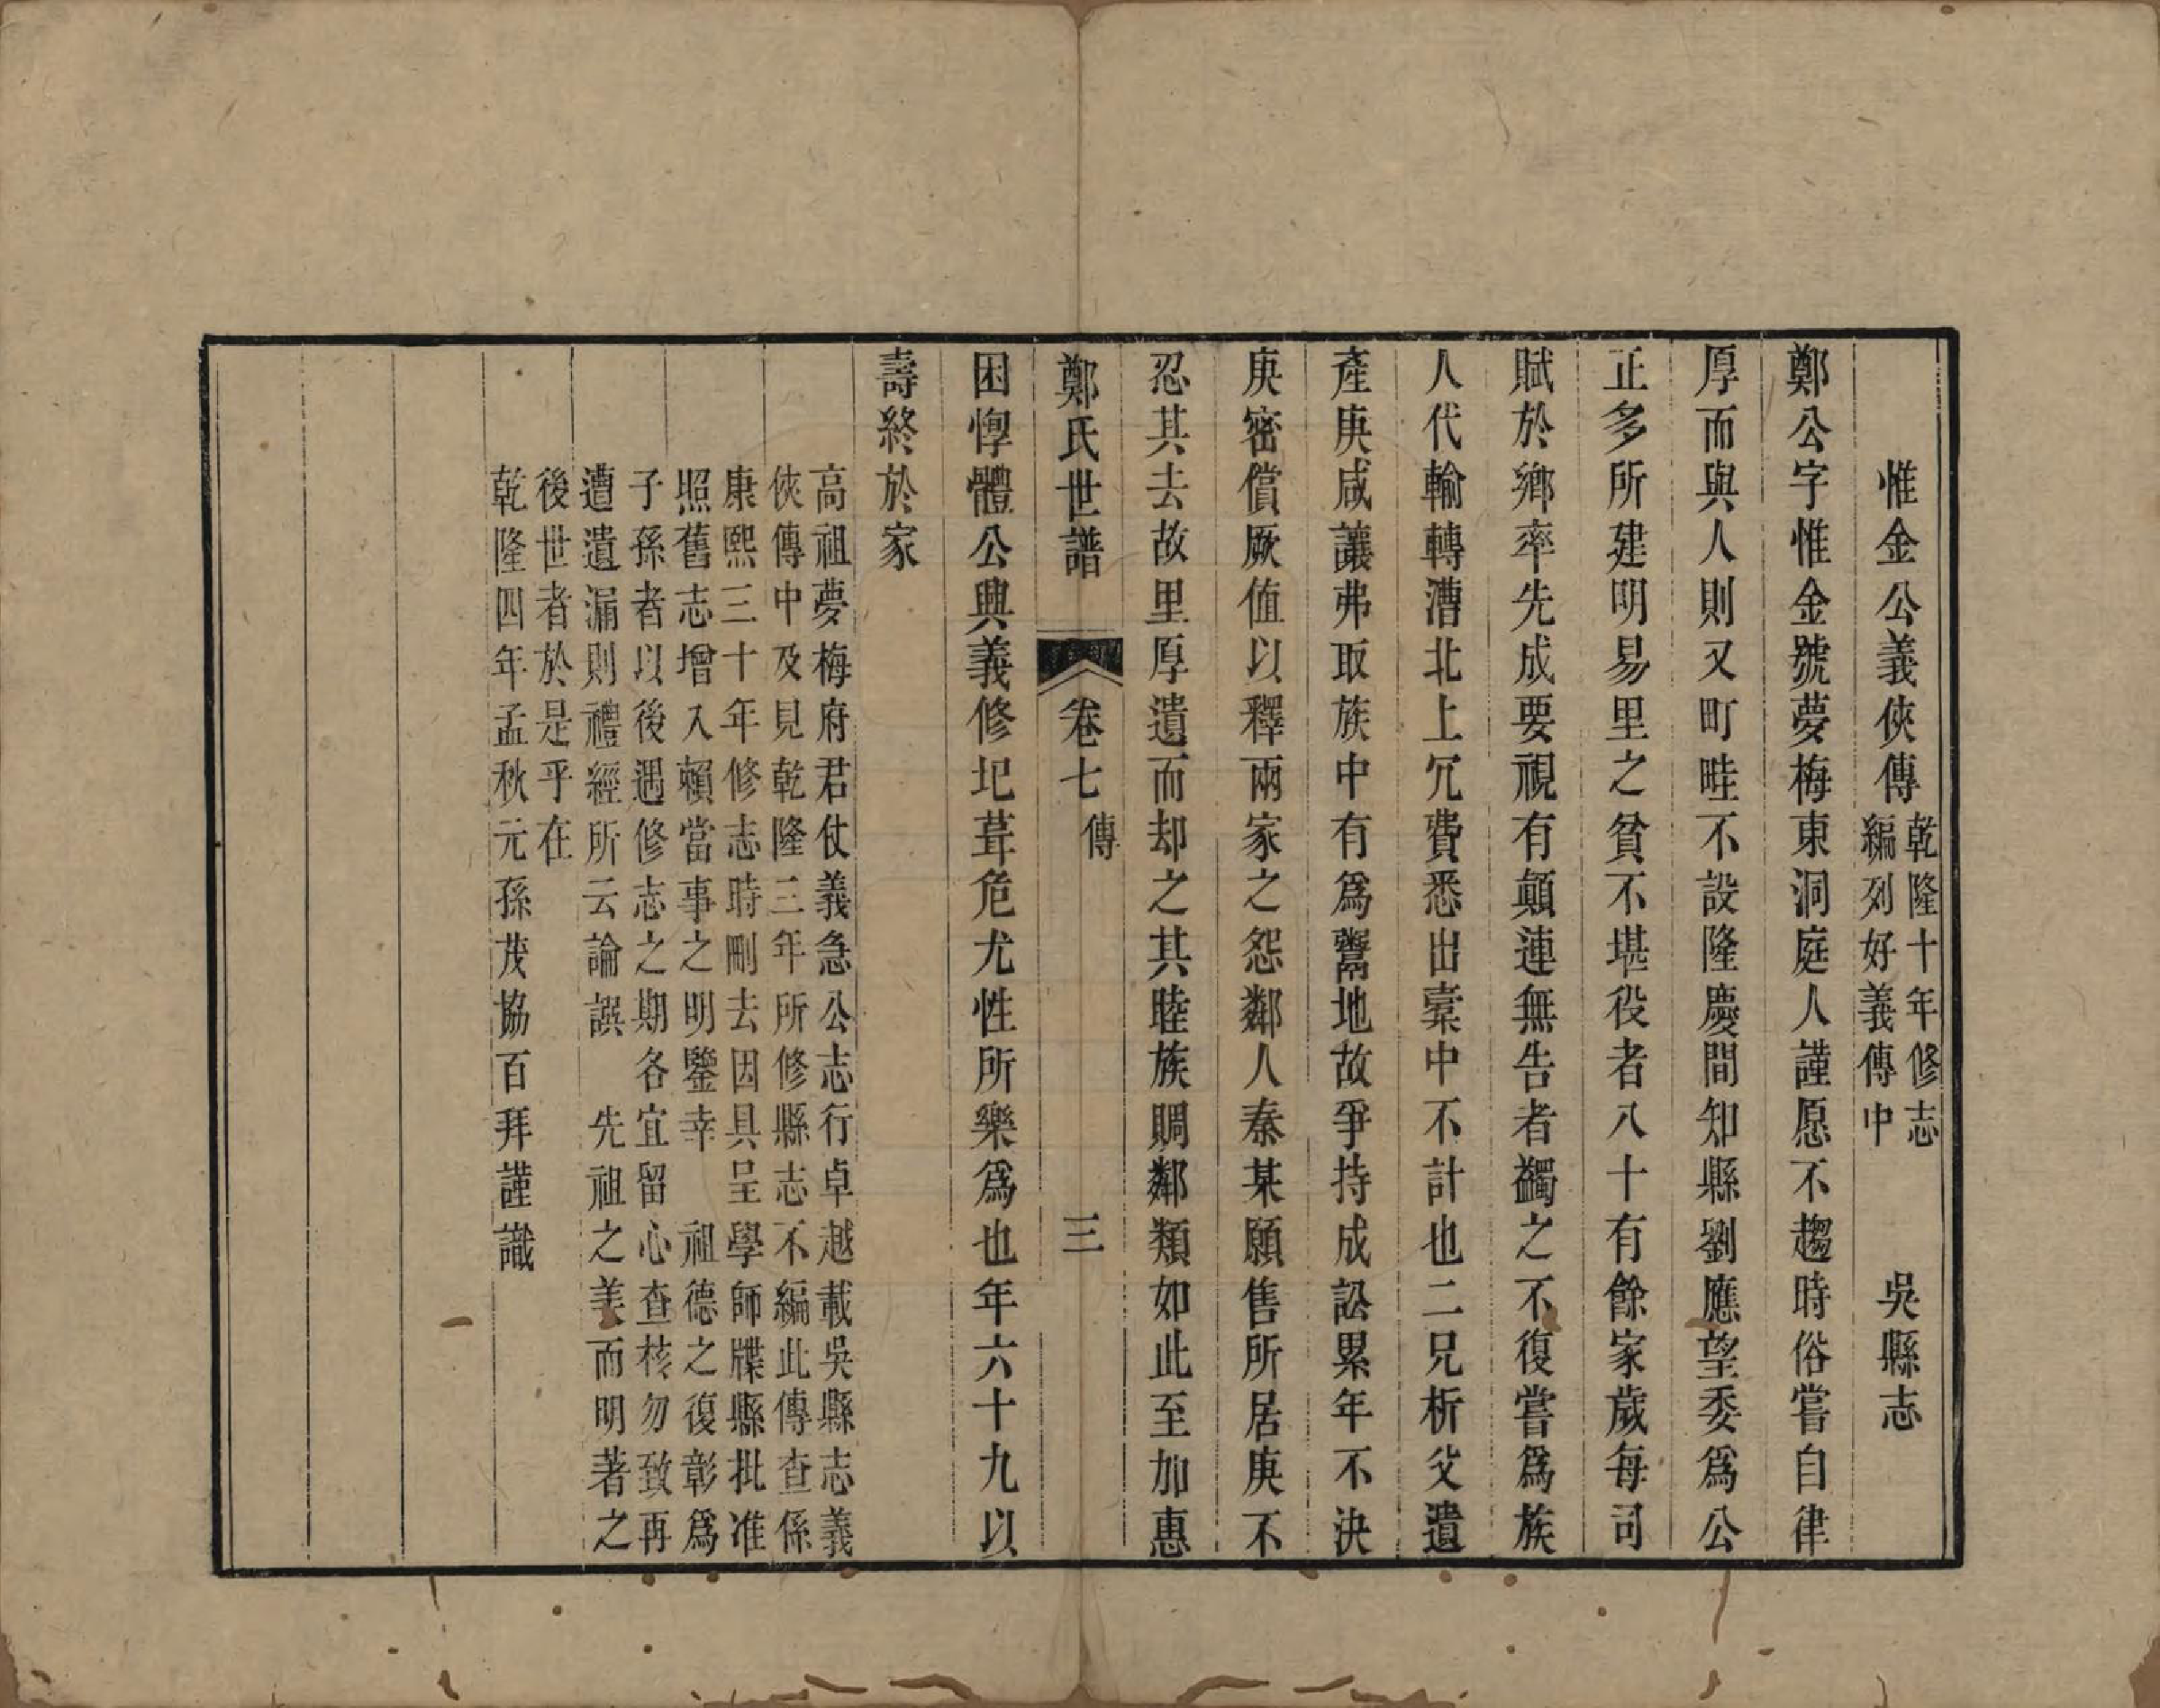 惟金公義俠傳 乾隆十年修志編列好義傳中 吳縣志
鄭公字惟金號夢梅東洞庭人謹愿不趨時俗嘗自律
厚而與人則又町畦不設隆慶間知縣劉應望委爲公
正多所建明易里之貧不堪役者八十有餘家歲每司
賦於鄉率先成要視有顛連無告者蠲之不復嘗爲族
人代輸轉漕北上冗費悉出橐中不計也二兄析父遺
產庚咸讓弗取族中有爲鬻地故爭持成訟累年不決
庚密償厥值以釋兩家之怨鄰人秦某願售所居庚不
忍其去故里厚遺而却之其睦族賙鄰類如此至加惠
鄭氏世譜 卷七 傳 三
困惸體公興義修圮葺危尤性所樂爲也年六十九以
壽終於家
高祖夢梅府君仗義急公志行卓越載吳縣志義
俠傳中及見乾隆三年所修縣志不編此傳查係
康熙三十年修志時刪去因具呈學師牒縣批准
照舊志增入賴當事之明鑒幸 祖德之復彰爲
子孫者以後遇修志之期各宜留心查核勿致再
遭遺漏則禮經所云論譔 先祖之美而明著之
後世者於是乎在
乾隆四年孟秋元孫茂協百拜謹識